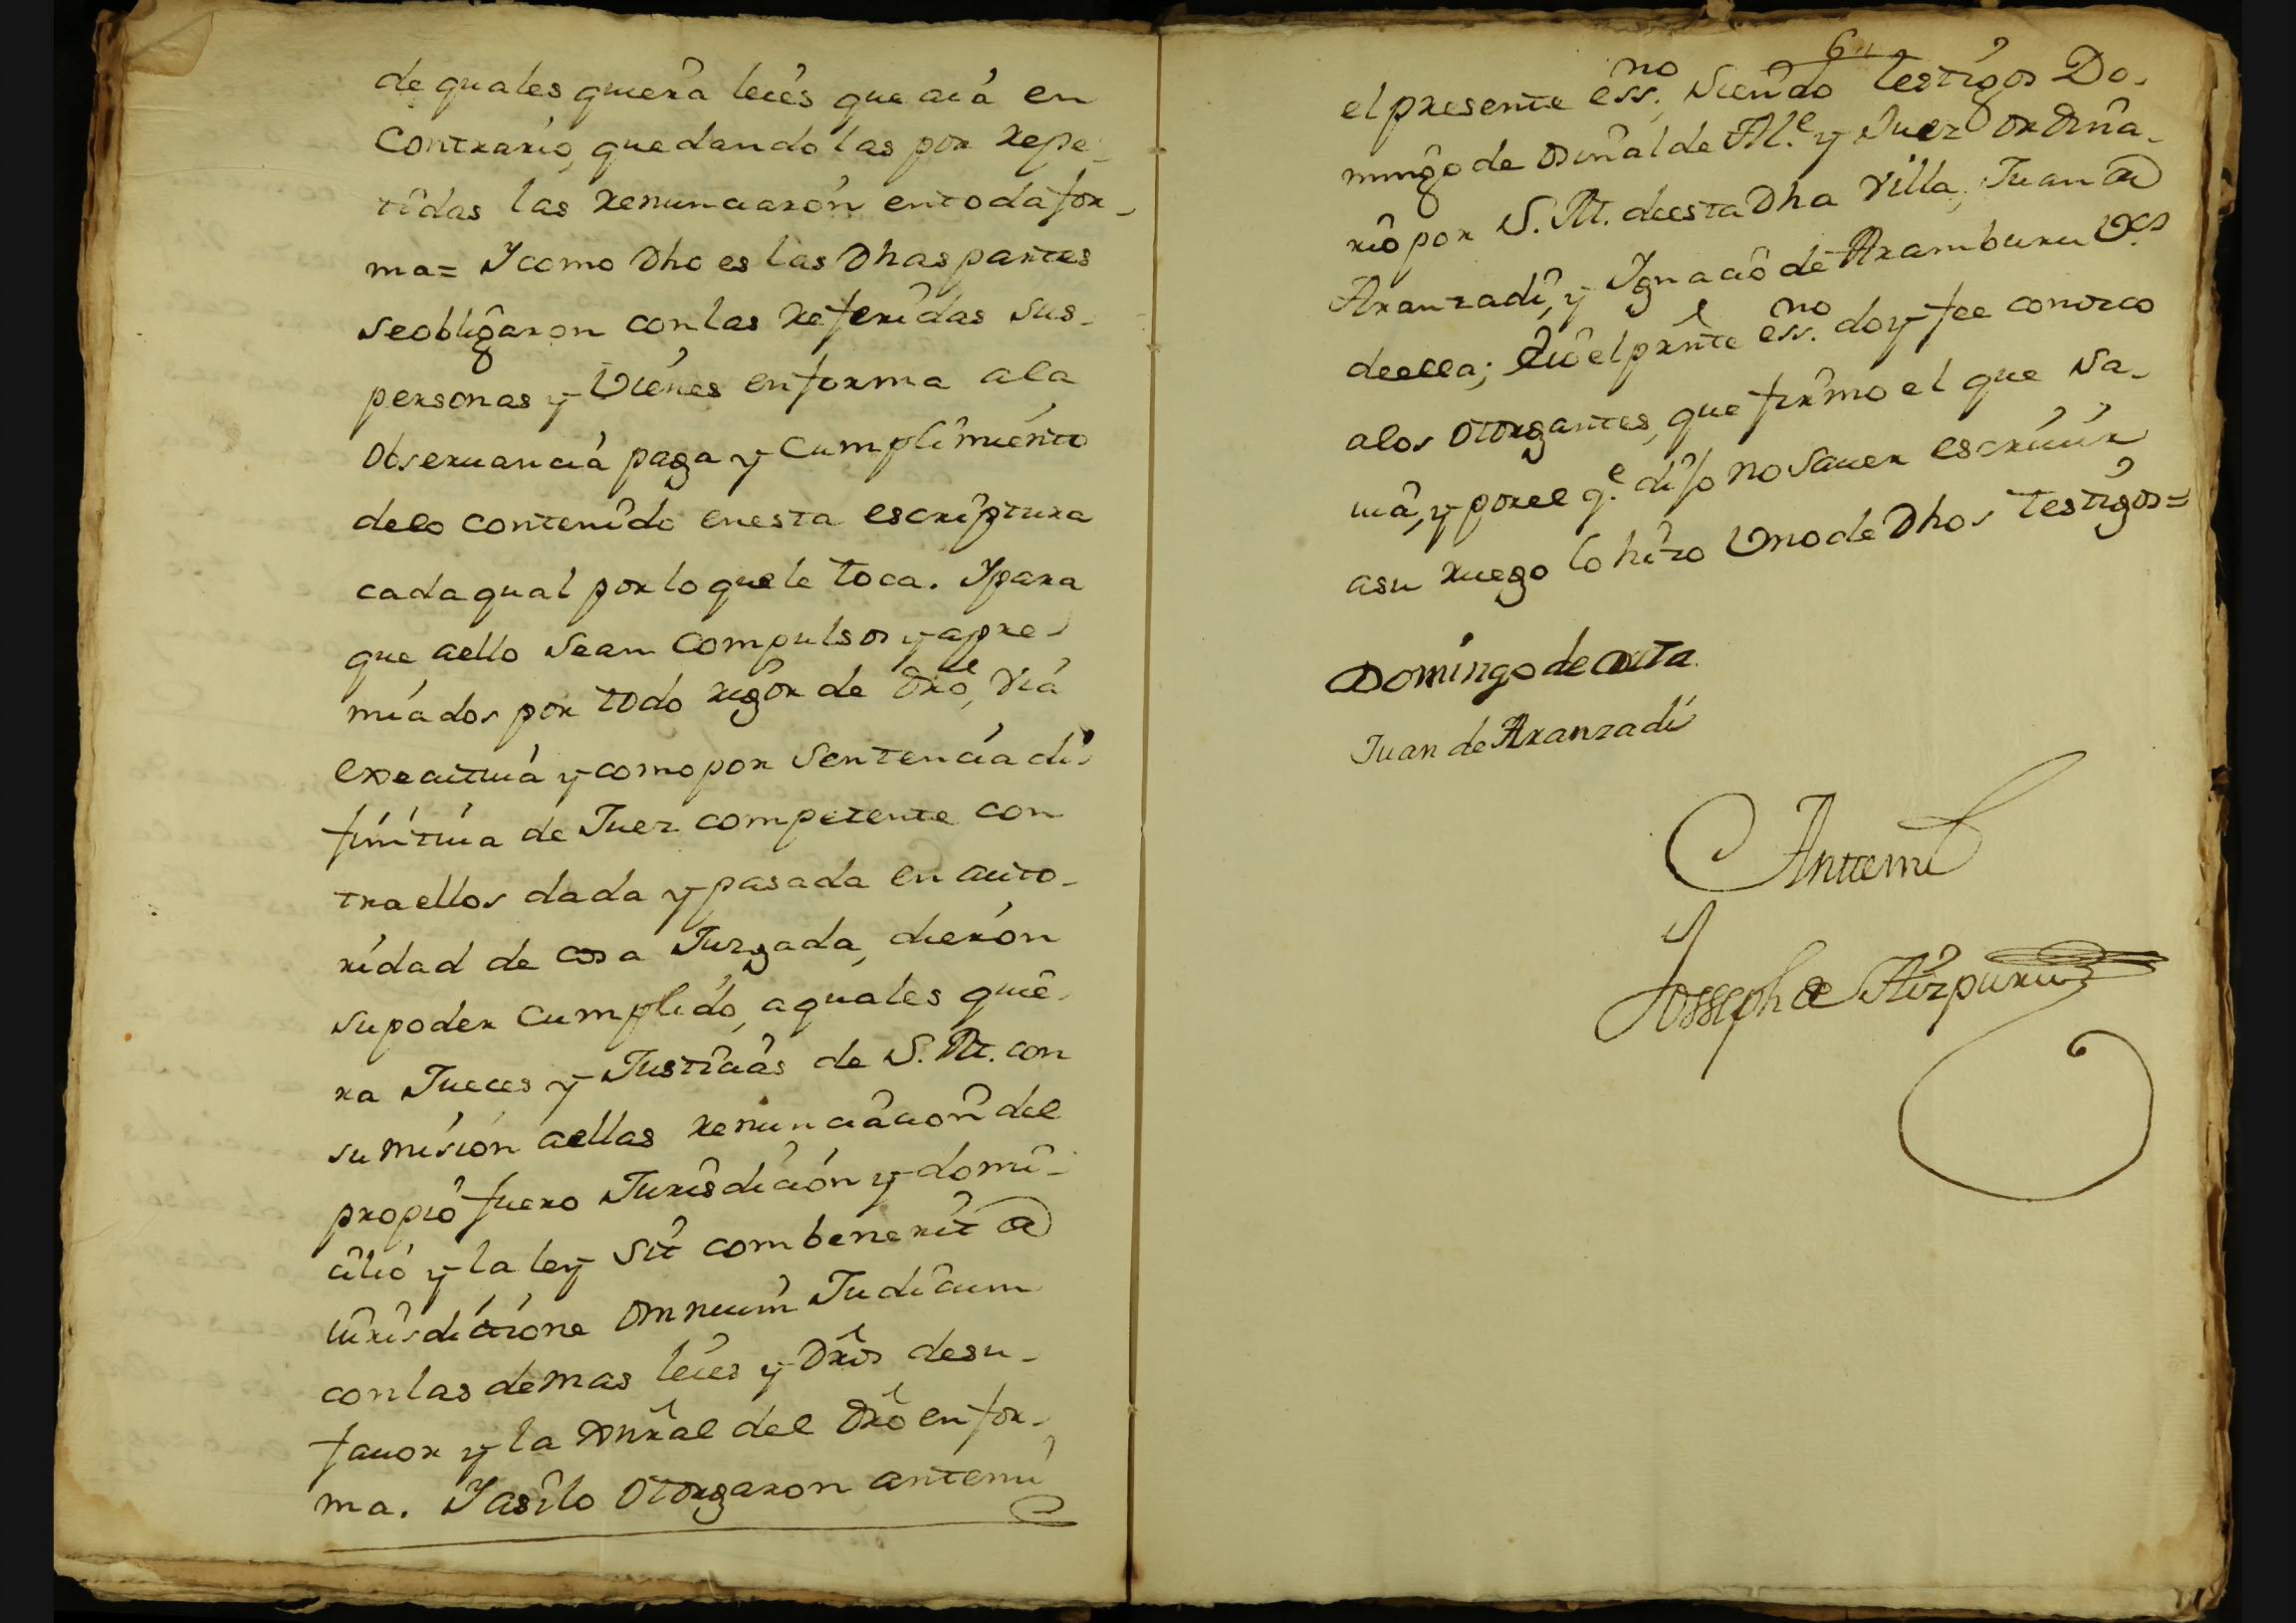 de quales quiera leies que aia en
Contrario, quedandolas por repe-
tidas las renunciaron en toda for-
ma= Y como Dho es las Dhas partes
se obligaron con las referidas sus
personas y Vienes en forma a la
Obseruancia paga y Cumplimiento
de lo contenido en esta escriptura
cada qual por lo que le toca. Y para
que a ello sean Compulsos y apre-
miados por todo rigor de Dro, Via
executiua y como por Sentencia di-
finitiua de Juez competente con
tra ellos dada y pasada en auto-
ridad de cosa Juzgada, dieron
su poder Cumplido, a quales quie-
ra Jueces y Justicias de S. M. con
sumision a ellas renunciacion del
propio fuero Jurisdicion y domi-
cilio y la ley Sit combenerit de
iurisdictione Omnium Judicum
con las demas leies y Dros de su
fauor y la Genral del Dro en for-
ma. Y asi lo Otorgaron ante mi
6
el presente ess.no Siendo testigos Do-
mingo de Alde. y Juez Ordina-
rio por S. M. de esta Dha Villa, Juan de
Aranzadi, y Ignacio de Aramburu Vos.
de ella; E io el prnte ess.no doy fee conozco
a los Otorgantes, que firmo el que Sa-
uia, y por el q.e dijo no Sauer escriuir
a su ruego lo hizo Uno de Dhos testigos=
Domingo de
Juan de Aranzadi
Ante mi
Josseph de Aizpuru